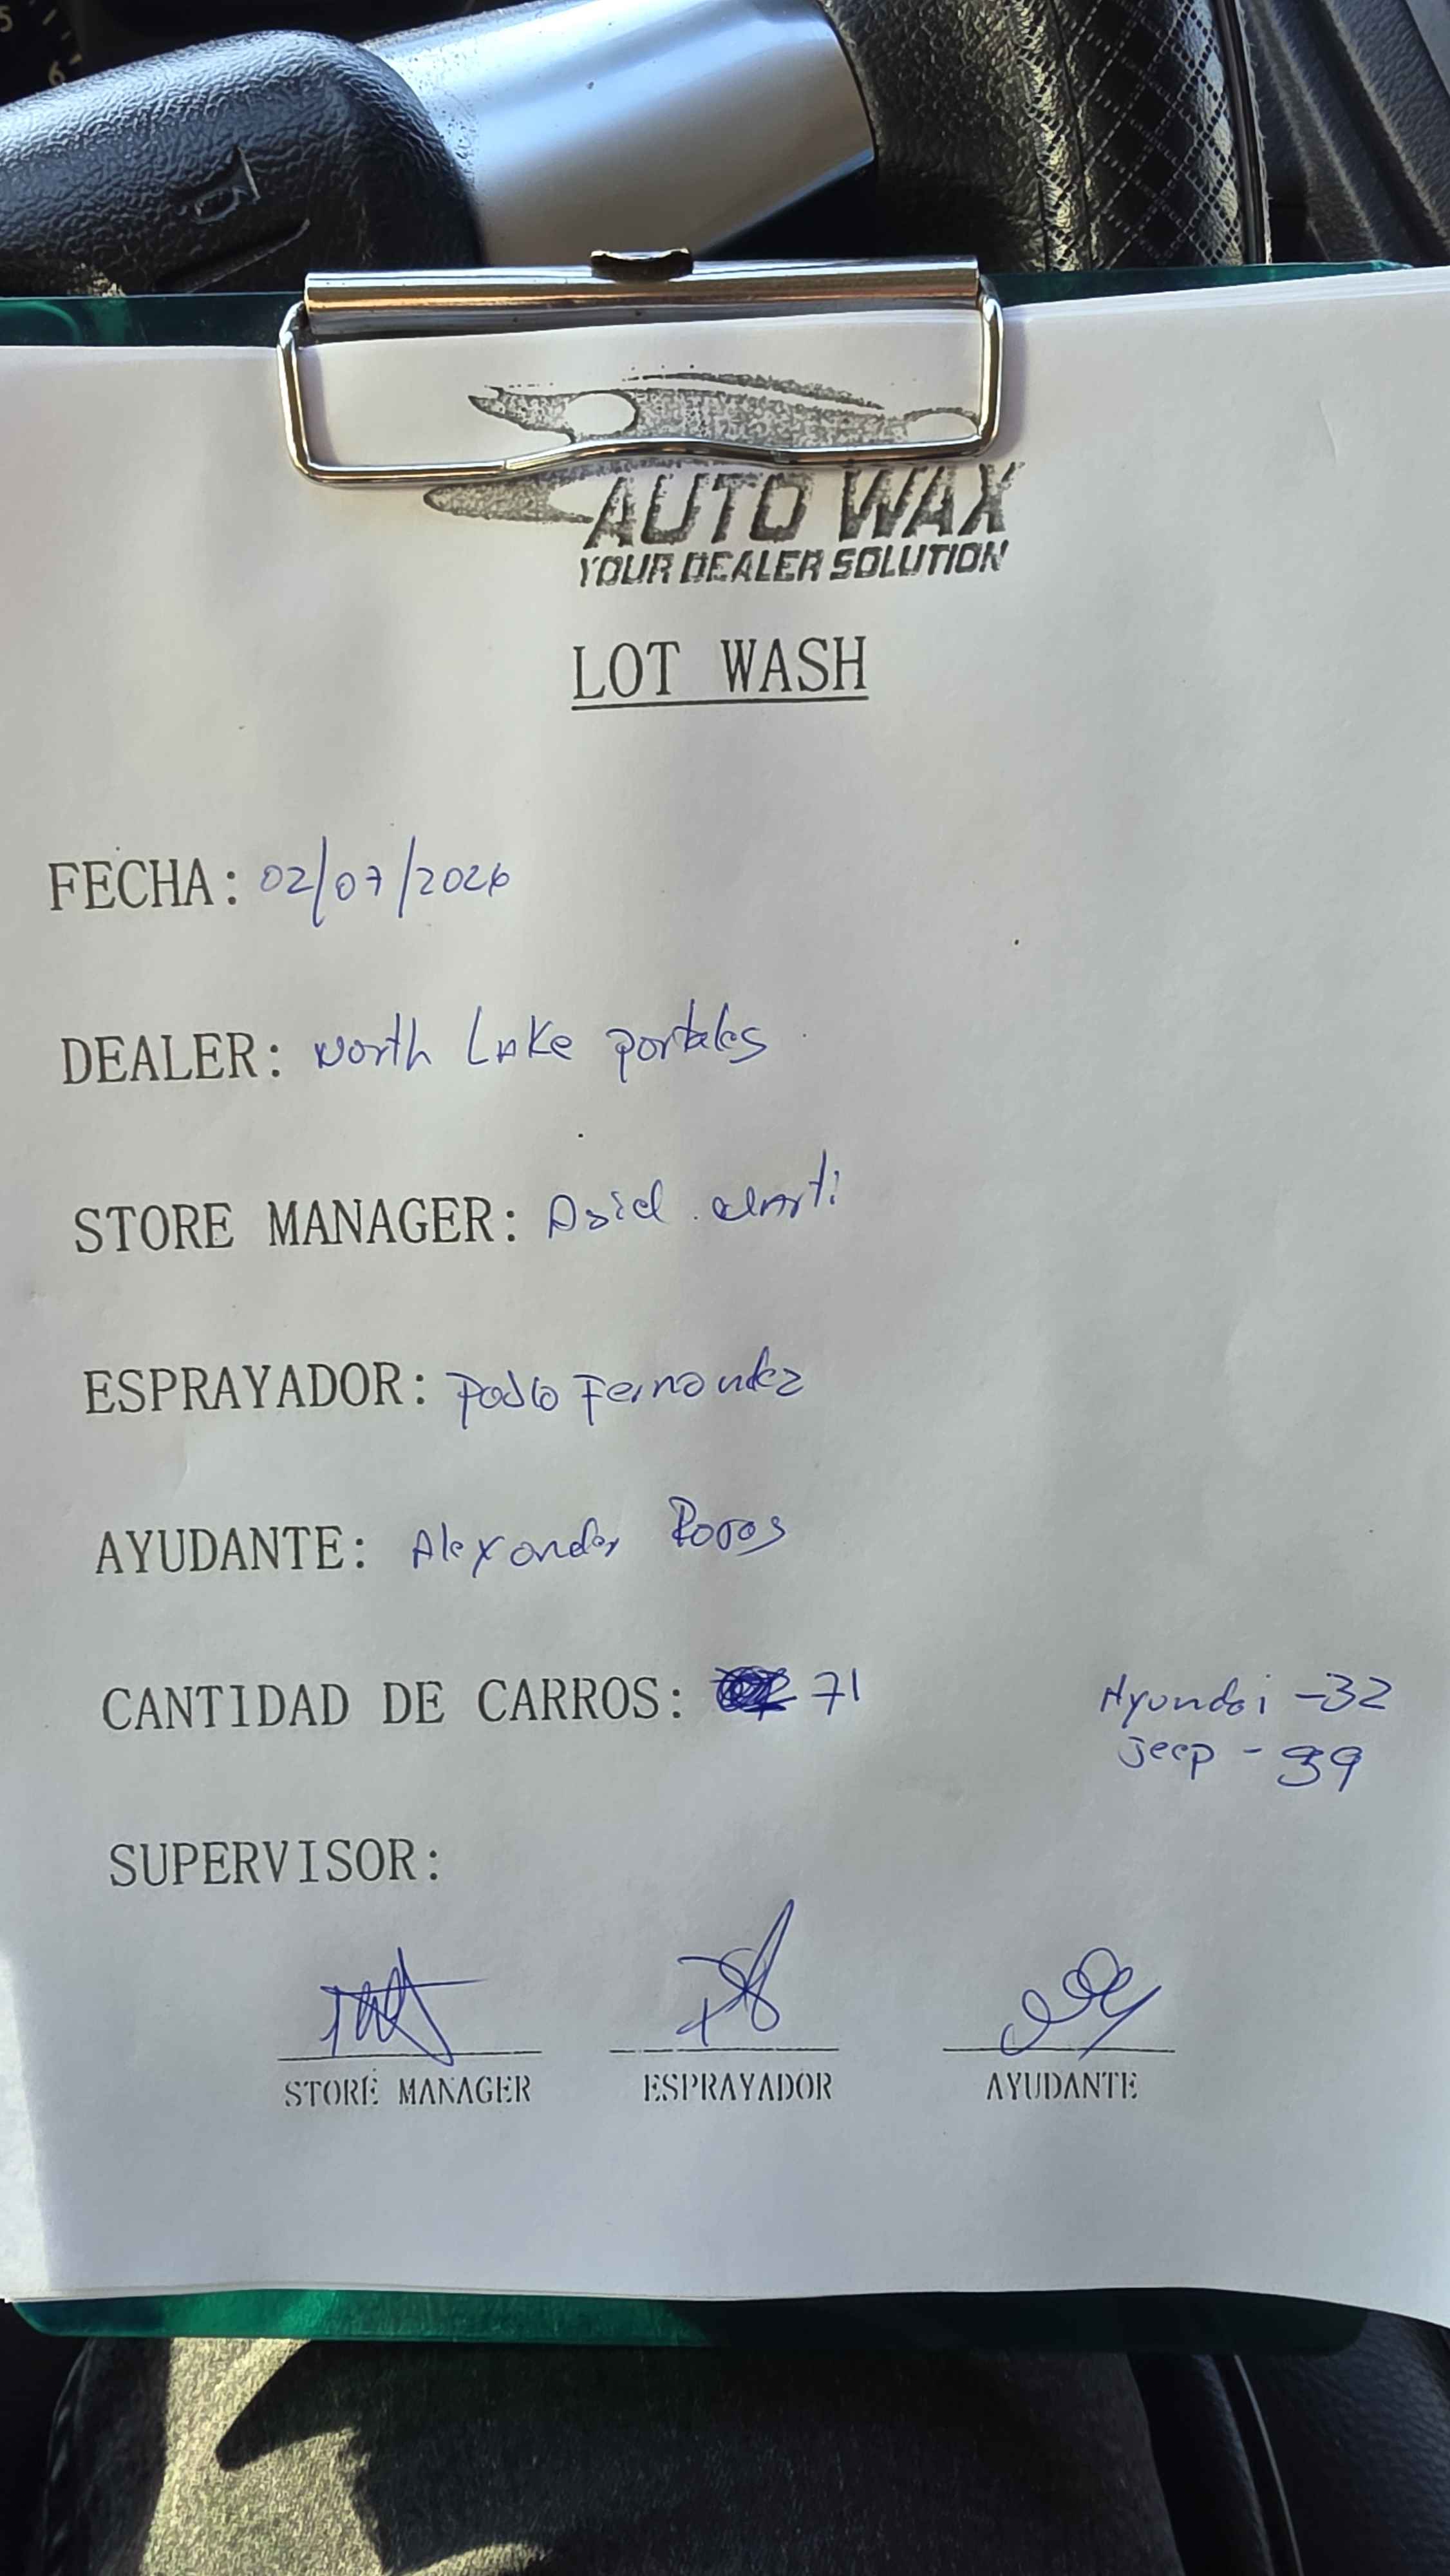 AUTO WAX
YOUR DEALER SOLUTION
LOT WASH
FECHA: 02/07/2026
DEALER: North Lake portales
STORE MANAGER: Asiel
ESPRAYADOR: Pablo Fernandez
AYUDANTE: Alexander
CANTIDAD DE CARROS: 71
Hyundai -32
Jeep - 39
SUPERVISOR:
STORE MANAGER ESPRAYADOR AYUDANTE